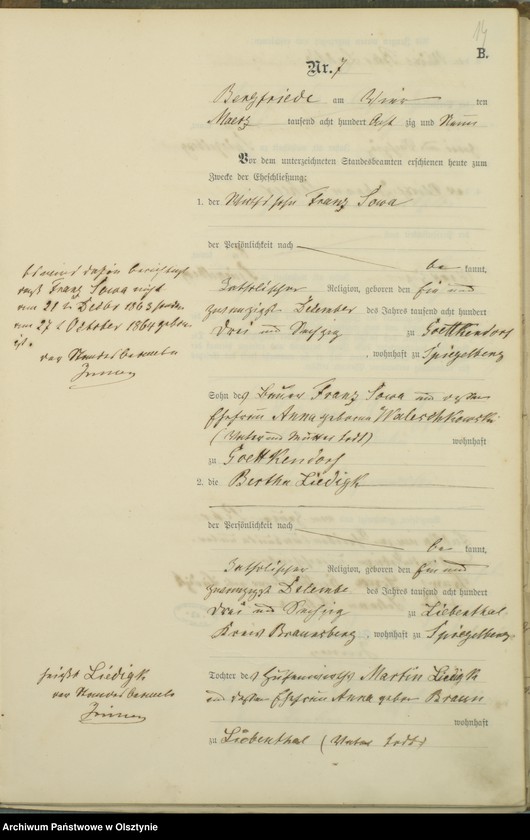 14
B.
Nr. 7
Bergfriede am Vier ten
Maerz tausend acht hundert Acht zig und Neun
Vor dem unterzeichneten Standesbeamten erschienen heute zum
Zwecke der Eheschließung:
1. der Wirthssohn Franz Sowa
der Persönlichkeit nach
be kannt,
katholischer Religion, geboren den Ein und
zwanzigsten Dezember des Jahres tausend acht hundert
drei und Sechzig zu Goettkendorf
, wohnhaft zu Spiegelberg
daß Franz Sowa nicht
am 21 ten Dezbr 1863 sondern
am 27 t October 1864 geboren
ist.
der Standesbeamte
Sohn des Bauer Franz Sowa und dessen
Ehefrau Anna geborene Waleschkowski
(Vater und Mutter todt) wohnhaft
zu Goettkendorf
2. die Bertha Liedigk
der Persönlichkeit nach
be kannt,
katholischer Religion, geboren den Ein und
zwanzigste Dezembe des Jahres tausend acht hundert
drei und Sechzig zu Liebenthal
Kreis Braunsberg , wohnhaft zu Spiegelberg
heißt Liedigk
der Standesbeamte
Tochter des Martin Liedigk
und dessen Ehefrau Anna gebor Braun
wohnhaft
zu Liebenthal (Vater todt)
Archiwum Państwowe w Olsztynie